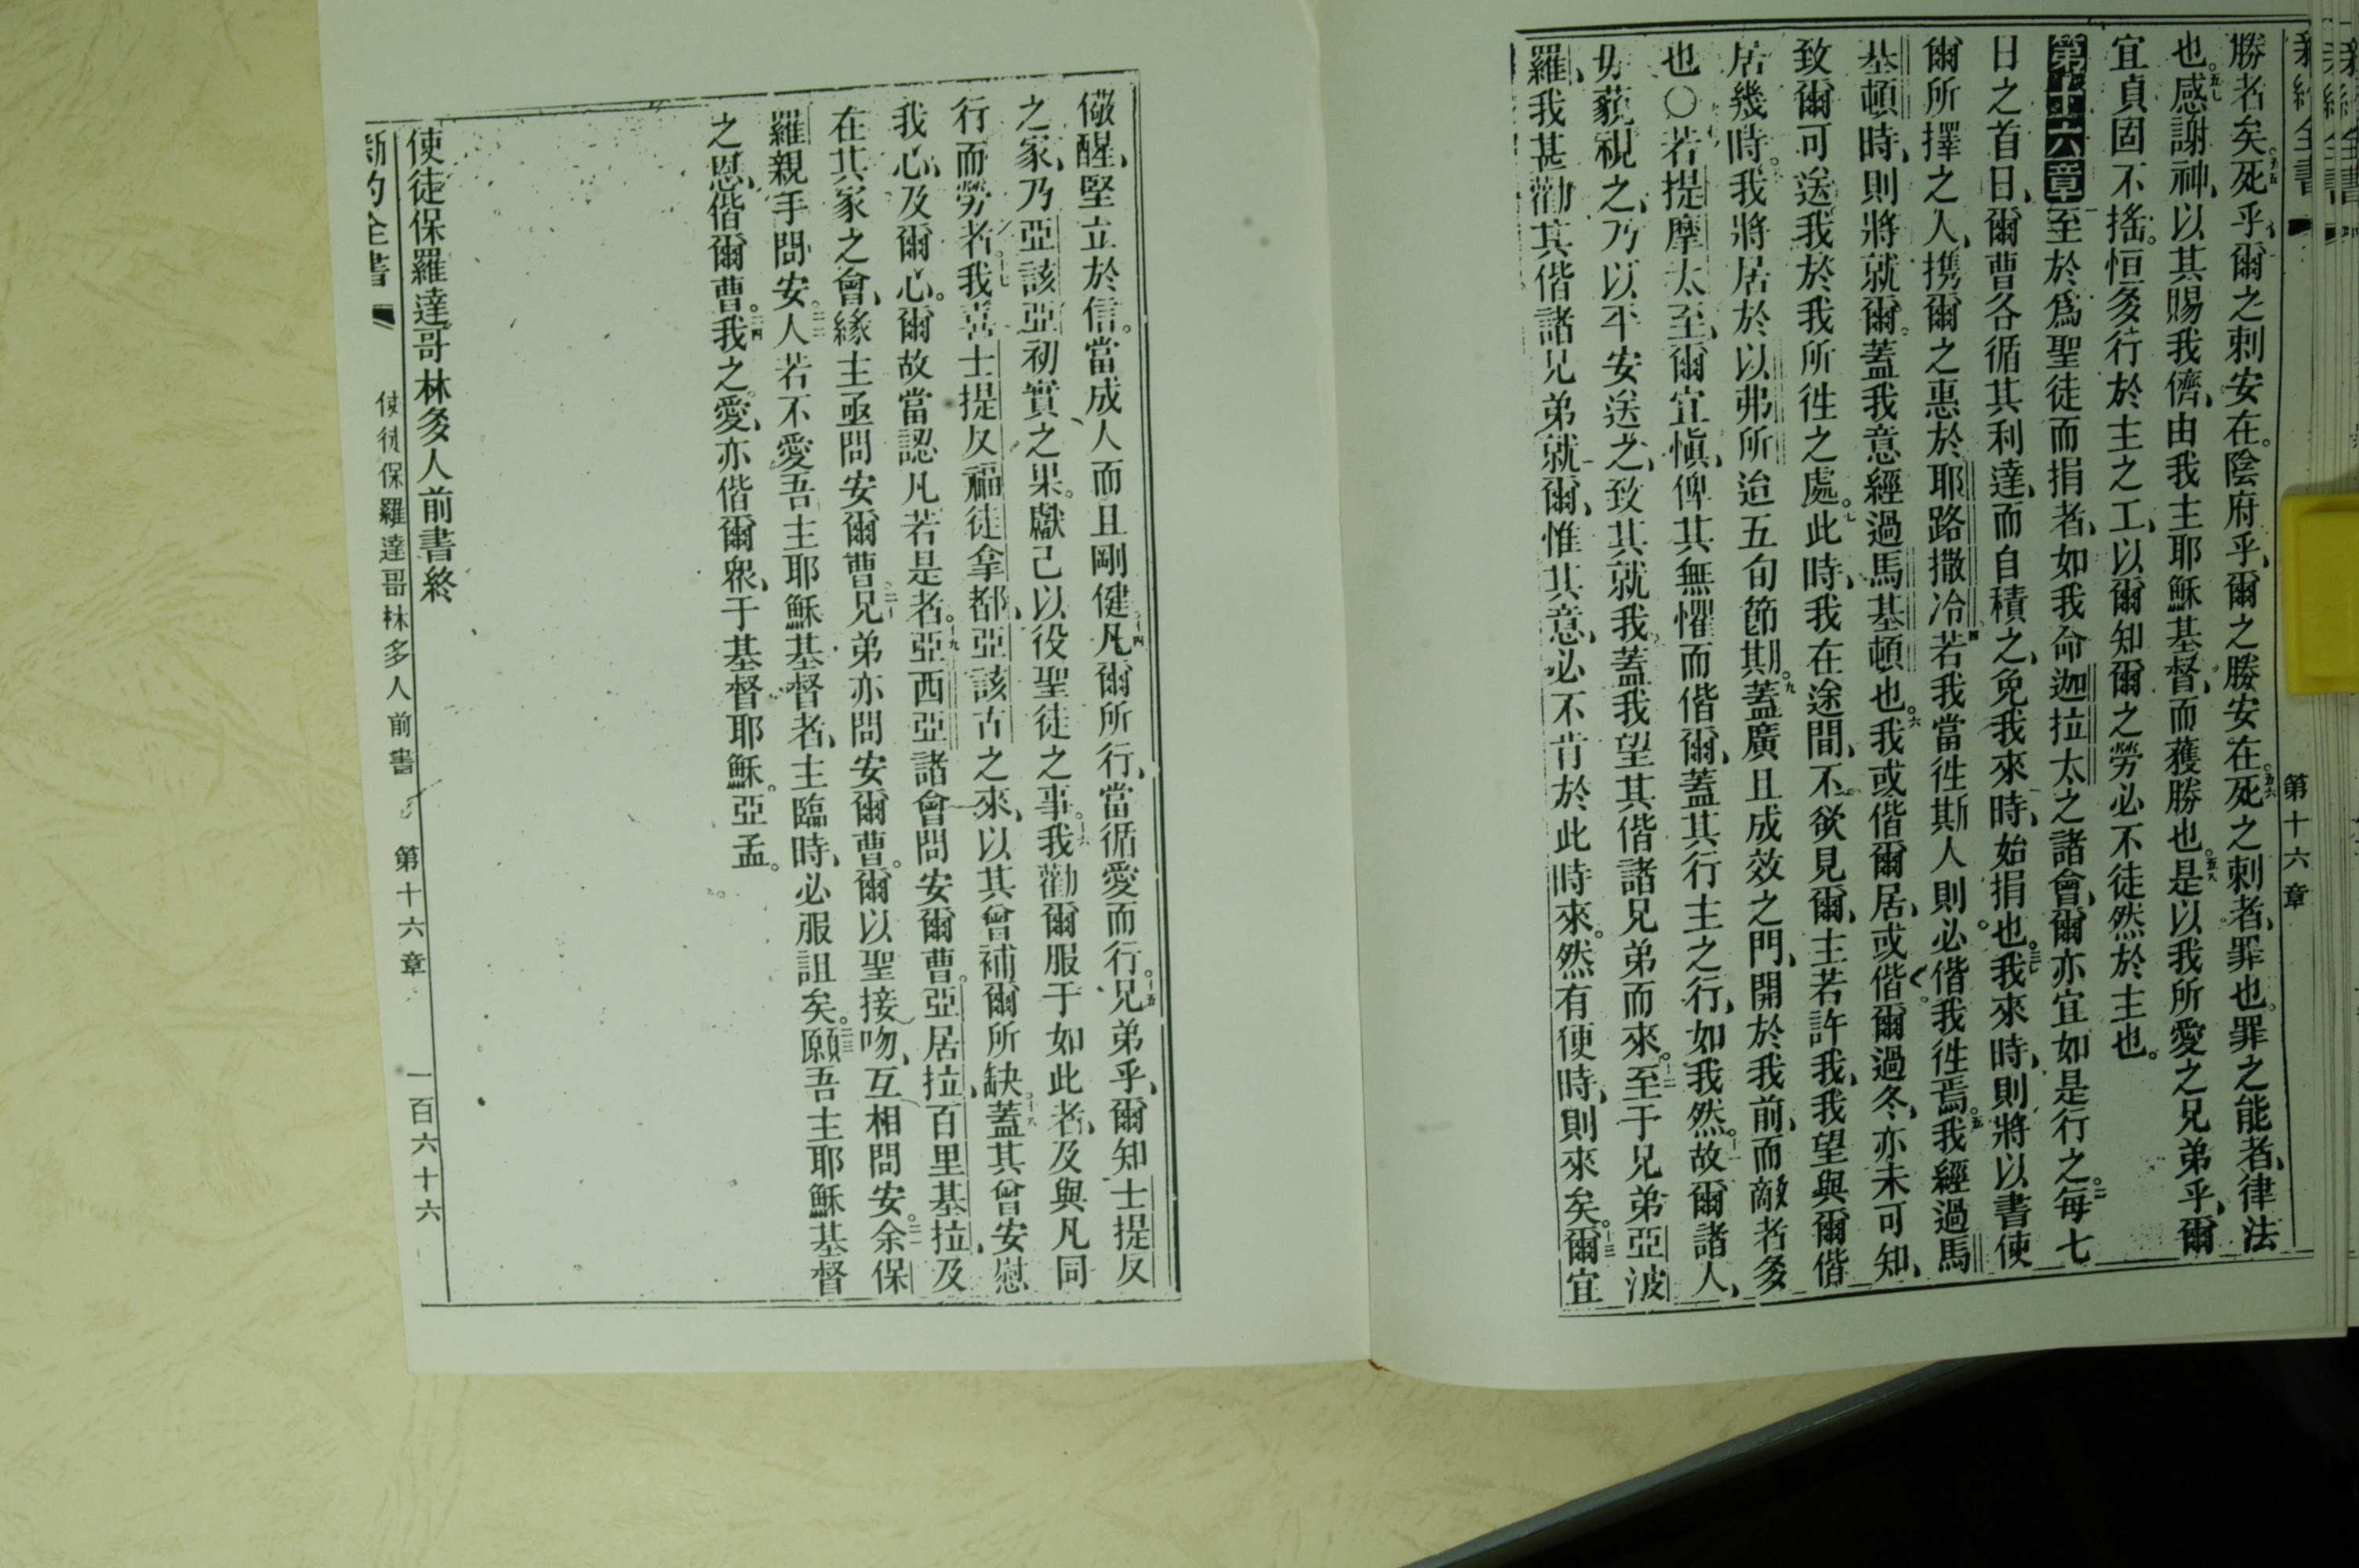 第十六章
勝者矣。五五死乎、爾之刺安在。陰府乎、爾之勝安在。五六死之刺者、罪也。罪之能者、律法
也。五七感謝神、以其賜我儕、由我主耶穌基督、而獲勝也。五八是以我所愛之兄弟乎、爾
宜貞固不搖。恒多行於主之工、以爾知爾之勞必不徒然於主也。
第十六章 至於爲聖徒而捐者、如我命迦拉太之諸會、爾亦宜如是行之。二每七
日之首日、爾曹各循其利達、而自積之、免我來時、始捐也。三我來時、則將以書使
爾所擇之人、携爾之惠於耶路撒冷。四若我當徃斯人則必偕我徃焉。五我經過馬
基頓時、則將就爾。蓋我意經過馬基頓也。六我或偕爾居、或偕爾過冬、亦未可知、
致爾可送我於我所徃之處。七此時、我在途間、不欲見爾、主若許我、我望與爾偕
居幾時。八我將居於以弗所迨五旬節期。九蓋廣且成效之門、開於我前、而敵者多
也〇若提摩太至、爾宜愼、俾其無懼而偕爾、蓋其行主之行、如我然。十一故爾諸人、
毋藐視之、乃以平安送之、致其就我、蓋我望其偕諸兄弟而來。十二至于兄弟亞波
羅、我甚勸其偕諸兄弟就爾、惟其意、必不肯於此時來。然有便時、則來矣。十三爾宜
儆醒、堅立於信。當成人而且剛健。十四凡爾所行、當循愛而行。十五兄弟乎、爾知士提反
之家、乃亞該亞初實之果。獻己以役聖徒之事。十六我勸爾服于如此者、及與凡同
行而勞者。十七我喜士提反福徒拿都、亞該古之來、以其曾補爾所缺。十八蓋其曾安慰
我心、及爾心。爾故當認凡若是者。十九亞西亞諸會問安爾曹。亞居拉、百里基拉、及
在其家之會、緣主亟問安爾曹。二十兄弟亦問安爾曹。爾以聖接吻、互相問安。二一余保
羅親手問安。二二人若不愛吾主耶穌基督者、主臨時、必服詛矣。二三願吾主耶穌基督
之恩、偕爾曹。二四我之愛、亦偕爾衆、于基督耶穌。亞孟。
使徒保羅達哥林多人前書終
新約全書 使徒保羅達哥林多人前書 第十六章 一百六十六